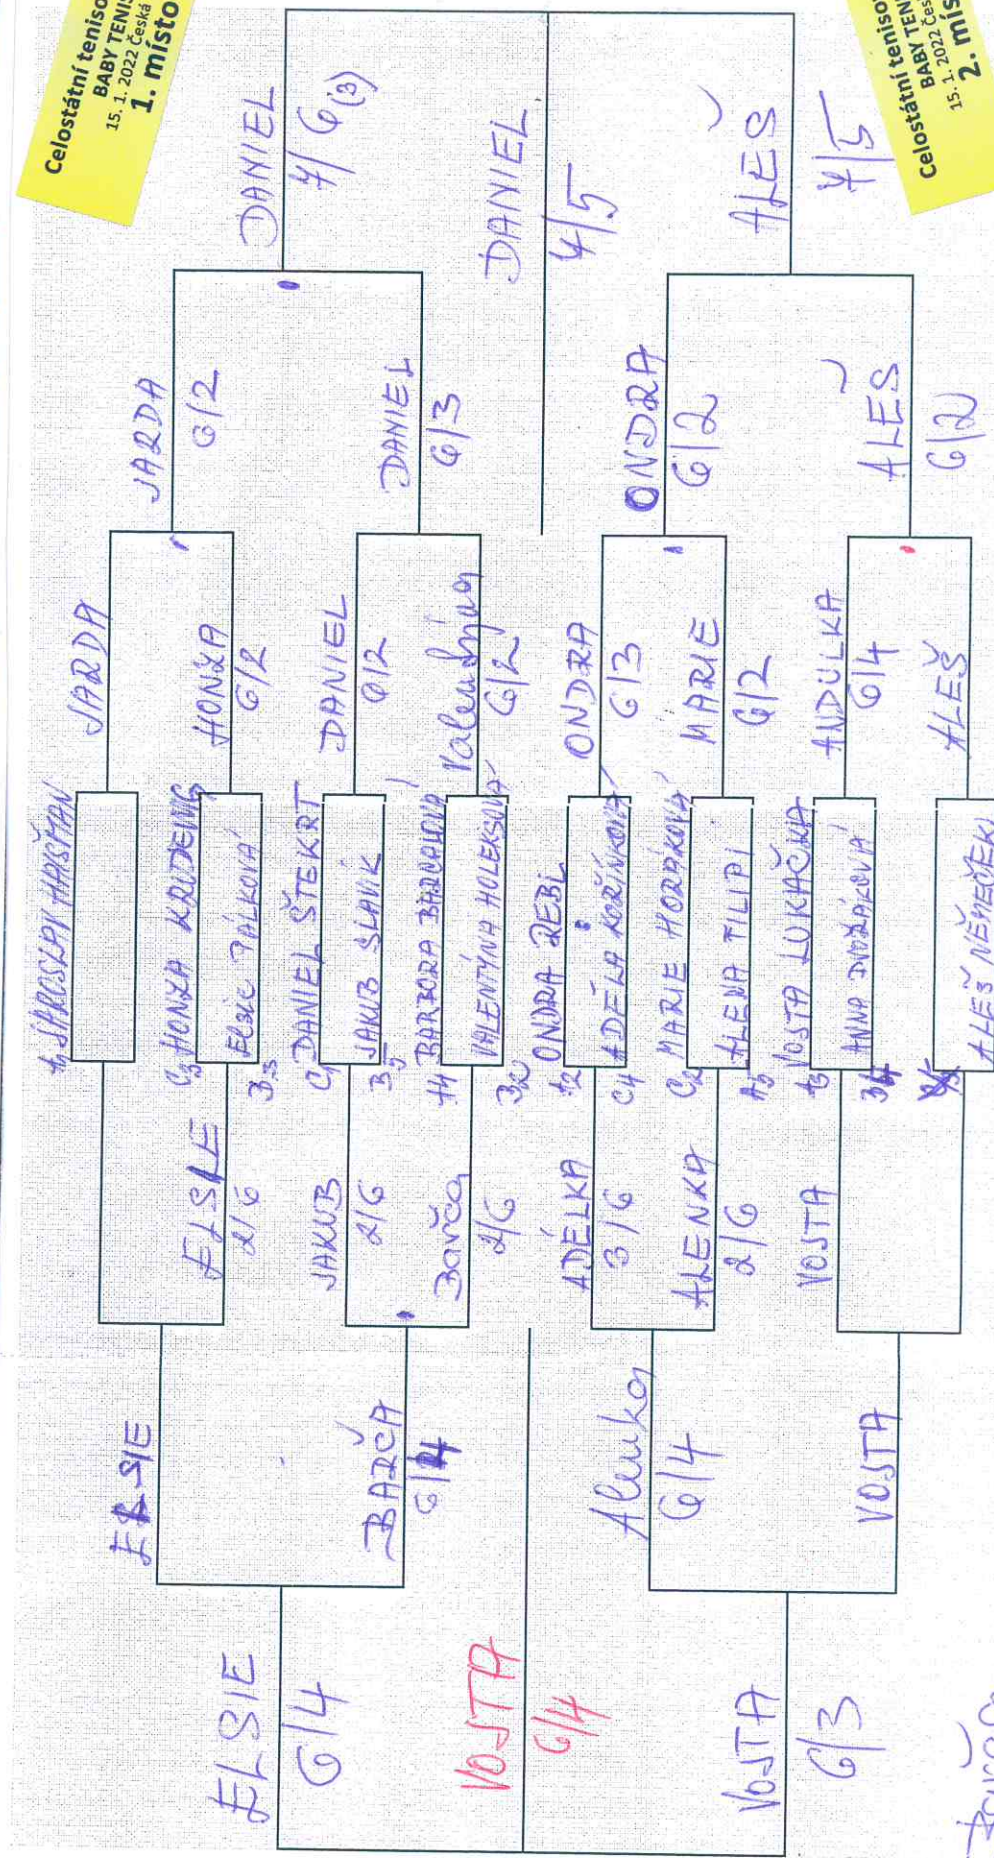 Celostátní teniso
BABY TENIS
15. 1. 2022 Česká
1. místo
DANIEL
7/6(3)
DANIEL
7/5
Celostátní teniso
BABY TEN
15. 1. 2022 Čes
2. mís
ALEŠ
7/5
JARDA
6/2
DANIEL
6/3
ONDRA
6/2
ALEŠ
6/2
JARDA
HONZA
6/2
DANIEL
6/2
6/2
ONDRA
6/3
MARIE
6/2
ANDULKA
6/4
ALEŠ
C3 HONZA
Elsie PÁLKOVÁ
B3
C1 DANIEL ŠTEKRT
JAKUB SLAVÍK
B5
A4 BARBORA
VALENTÝNA HOLEKSOVÁ
B2
A2 ONDRA REBL
ADÉLA KOŘÍNKOVÁ
C4
C2 MARIE HORÁKOVÁ
ALENA FILIPI
A5
A3 VOJTA LUKAČKA
ANNA DVOŘÁKOVÁ
B4
ALEŠ NĚMEČEK
ELSIE
2/6
JAKUB
2/6
Barča
2/6
ADÉLKA
3/6
ALENKA
2/6
VOJTA
ELSIE
BARČA
6/4
Alenka
6/4
VOJTA
ELSIE
6/4
VOJTA
6/4
VOJTA
6/3